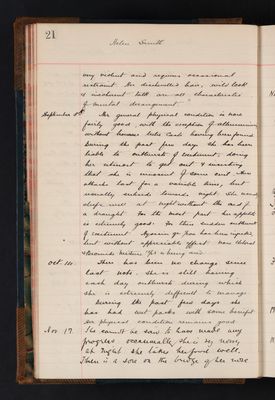 21
Helen Smith
very violent and requires occasional
restraint. Her dishevelled hair, wild look
& incoherent talk are all characteristic
of mental derangement.
September 8th Her general physical condition is now
fairly good, with the exception of albuminuria
without however tube casts having been found
During the past few days she has been
liable to outbursts of excitement, doing
her utmost to get out & imagining
that she is
attacks last for a variable time, but
usually subside towards night. She
sleeps well at night without the aid of
a draught. For the most part her appetite
is extremely good. In these sudden outbursts
of excitement Hyoscine has been injected
but without appreciable effect. Now Chloral
& Bromide mixture is being used
Oct. 10. There has been no change since
last note. She is still having
each day outbursts during which
she is extremely difficult to manage
During the past few days she
has had wet packs with some benefit
Her physical condition remains good
Nov 17. She cannot be said to have made any
progress occasionally she is very noisy
at night. She takes her food well.
There is a sore on the bridge of her nose